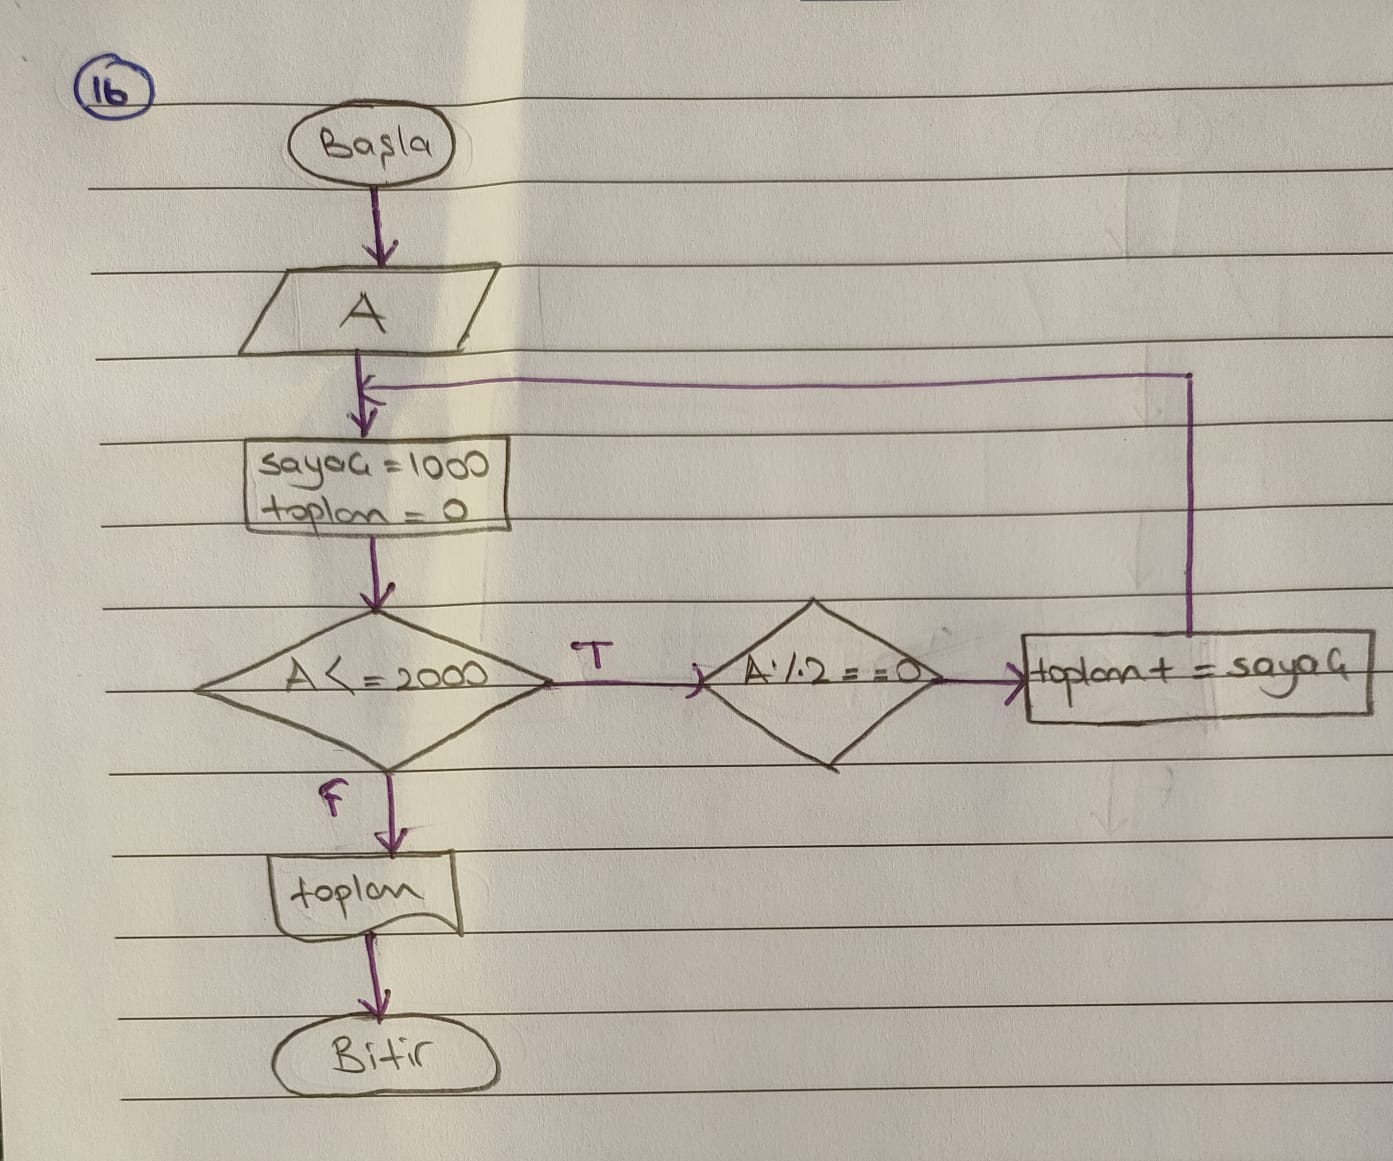 16
Başla
A
sayaç = 1000
toplam = 0
A <= 2000
T
A % 2 == 0
toplam += sayaç
F
toplam
Bitir